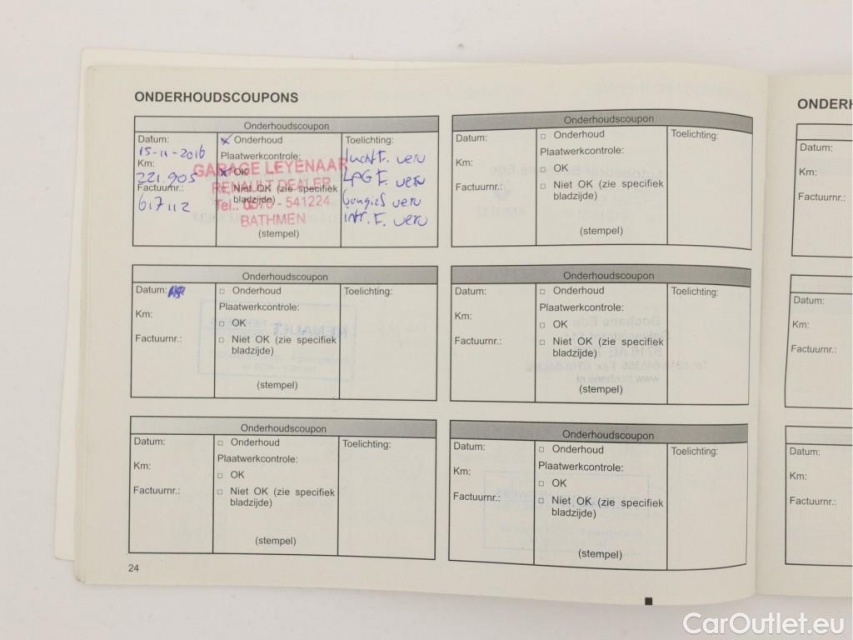 ONDERHOUDSCOUPONS
Onderhoudscoupon
Datum: 15-11-2016
Km: 221.905
Factuurnr.: 617112
x Onderhoud
Plaatwerkcontrole:
x OK
Niet OK (zie specifiek
bladzijde)
(stempel)
GARAGE LEYENAAR
RENAULT DEALER
Tel.: 0570 - 541224
BATHMEN
Toelichting:
lucht F. verv
LPG F. verv
bougies verv
intr. F. verv
Onderhoudscoupon
Datum:
Km:
Factuurnr.:
Onderhoud
Plaatwerkcontrole:
OK
Niet OK (zie specifiek
bladzijde)
(stempel)
Toelichting:
Onderhoudscoupon
Datum:
Km:
Factuurnr.:
Onderhoud
Plaatwerkcontrole:
OK
Niet OK (zie specifiek
bladzijde)
(stempel)
Toelichting:
Onderhoudscoupon
Datum:
Km:
Factuurnr.:
Onderhoud
Plaatwerkcontrole:
OK
Niet OK (zie specifiek
bladzijde)
(stempel)
Toelichting:
Onderhoudscoupon
Datum:
Km:
Factuurnr.:
Onderhoud
Plaatwerkcontrole:
OK
Niet OK (zie specifiek
bladzijde)
(stempel)
Toelichting:
Onderhoudscoupon
Datum:
Km:
Factuurnr.:
Onderhoud
Plaatwerkcontrole:
OK
Niet OK (zie specifiek
bladzijde)
(stempel)
Toelichting:
24
ONDERH
Datum:
Km:
Factuurnr.:
Datum:
Km:
Factuurnr.:
Datum:
Km:
Factuurnr.:
CarOutlet.eu